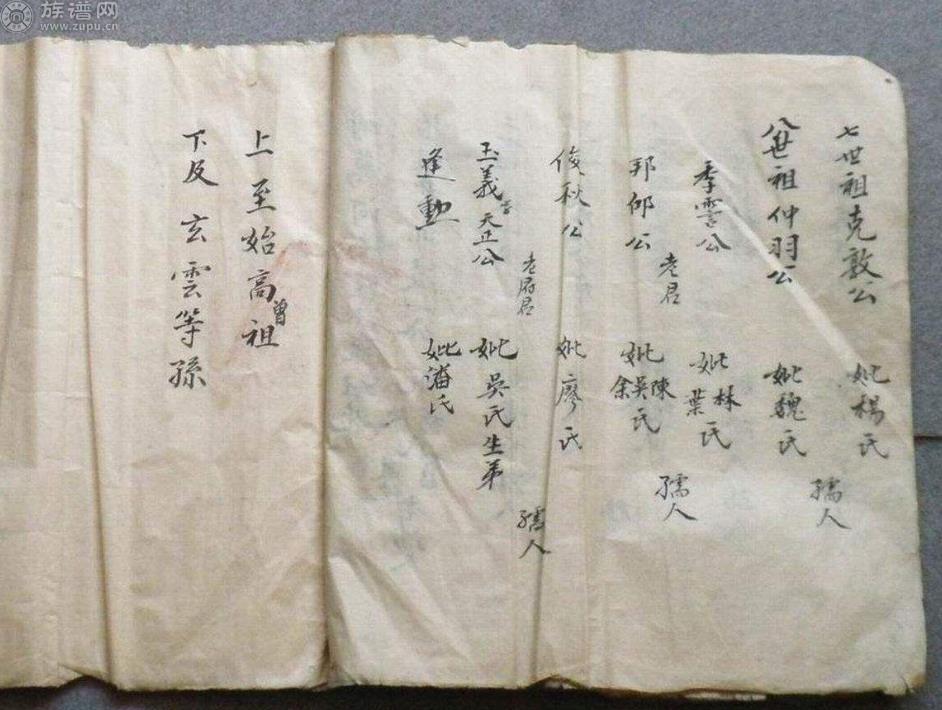 族谱网
www.zupu.cn
七世祖克敦公 妣楊氏
孺人
八世祖仲羽公 妣魏氏
季雲公 妣林葉氏
老君 孺人
邦仰公 妣陳吳余氏
俊秋公 妣廖氏
老府君 孺人
玉義 天正公 妣吳氏生弟
逢勳 妣潘氏
上至始高曾祖
下及玄雲等孫